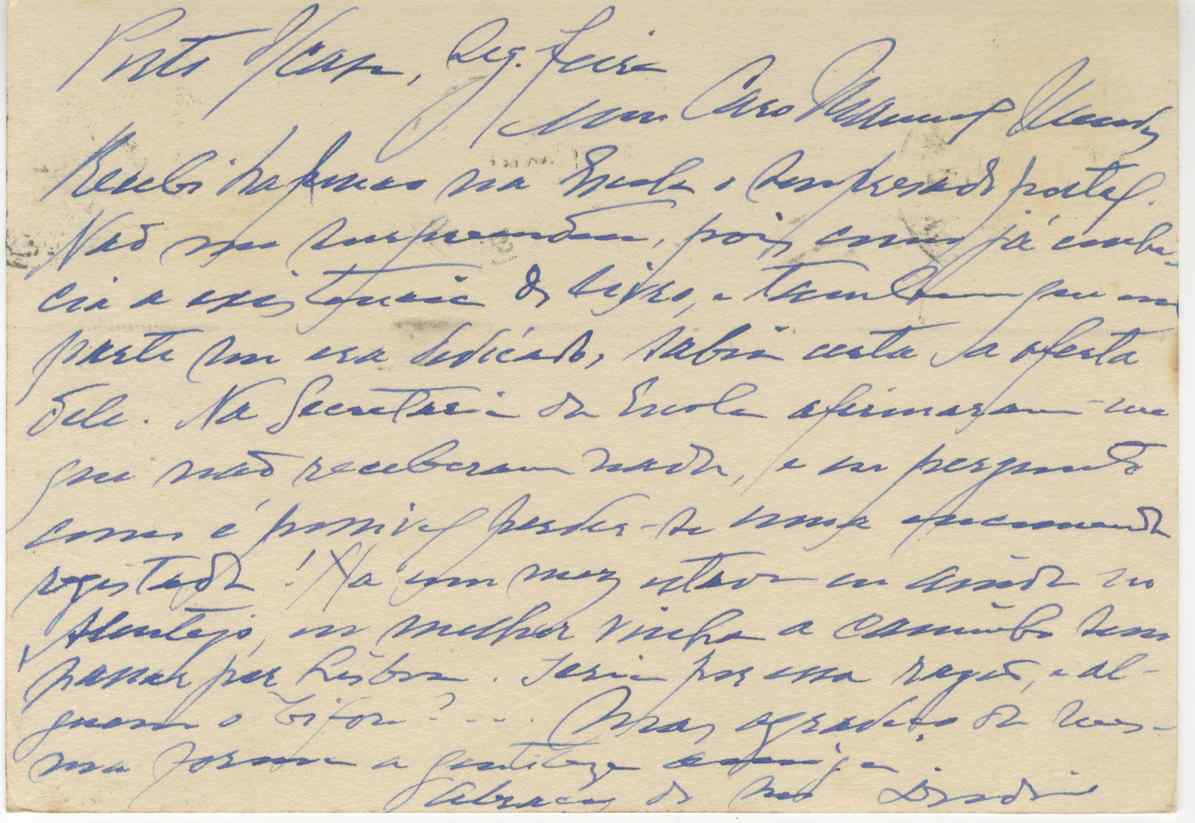 Porto, Seg. feira
meu Caro Manuel Mendes
Recebi ha pouco na Escola o seu postal.
Não me surpreendeu, pois como já conhe-
cia a existencia do livro, e tambem que em
parte me era dedicado, sabia certa a oferta
dele. Na Secretaria da Escola afirmaram-me
que não receberam nada, e eu pergunto
como é possivel perder-se uma encomenda
registada! Ha um mez estava eu ainda no
Alentejo, ou melhor vinha a caminho sem
passar por Lisboa. Seria por essa razão, e al-
guem o bifou?.... Mas agradeço da mes-
ma forma a gentileza amiga.
Abraços do seu